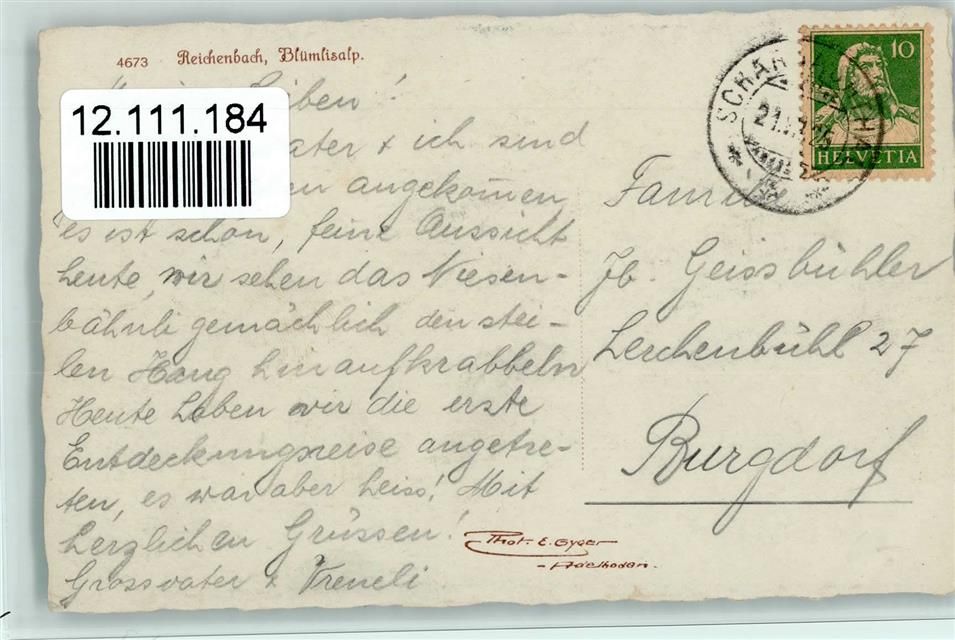 4673 Reichenbach, Blümlisalp.
Lieben!
12.111.184
ater & ich sind
en angekomen,
es ist schön, feine Aussicht
heute, wir sehen das Niesen-
bähnli gemächlich den stei-
len Hang hinaufkrabbeln
Heute haben wir die erste
Entdeckungsreise angetre-
ten, es war aber heiss! Mit
herzlichen Grüssen!
Grossvater & Vreneli
Phot. E. Gyger
- Adelboden.
10
HELVETIA
Jb. Geissbühler
Lerchenbühl 27
Burgdorf